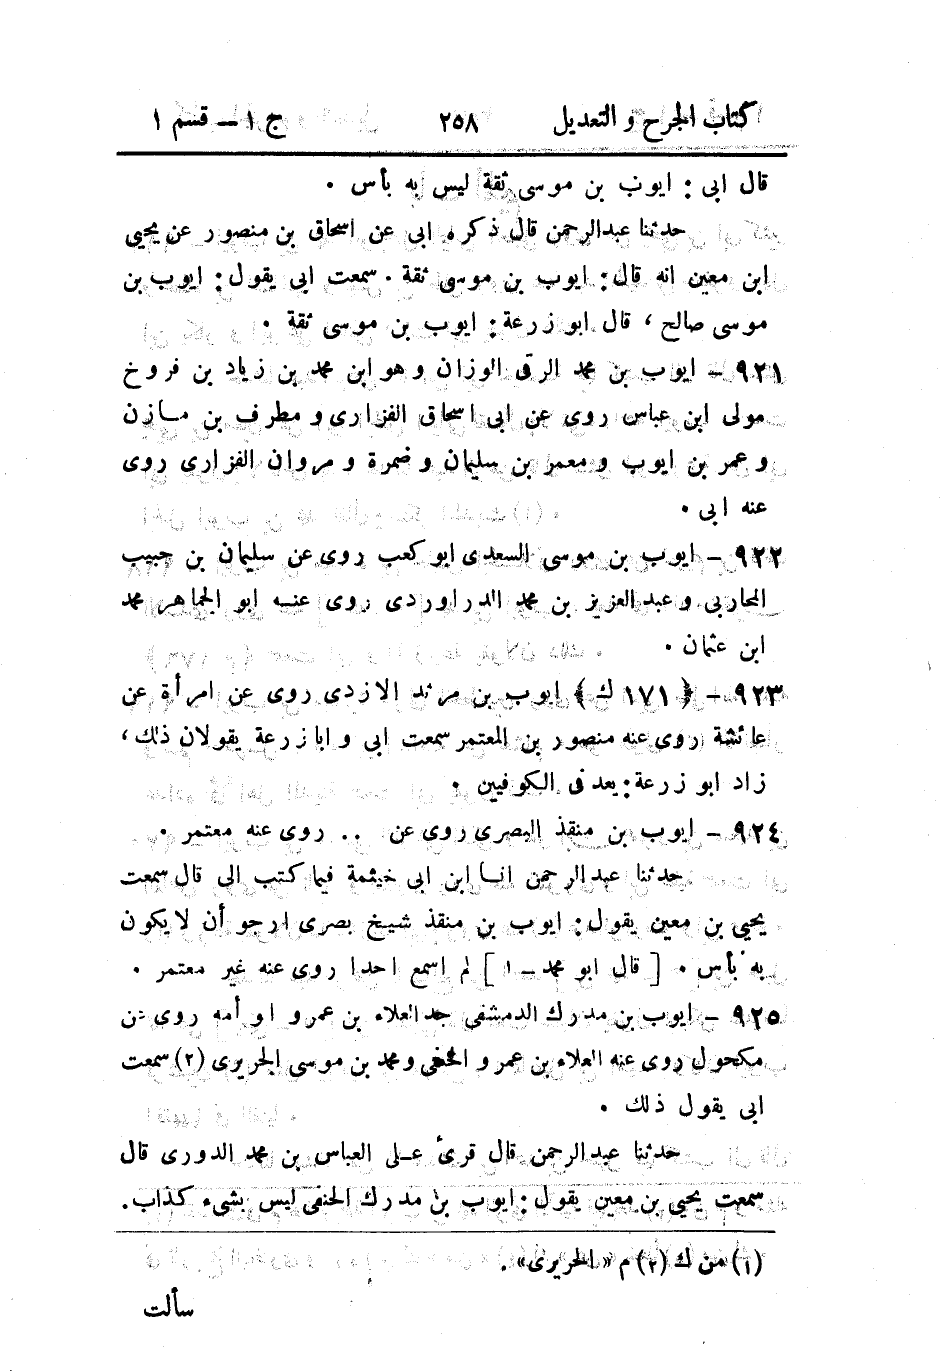 كتاب الجرح و التعديل ٢٥٨ ج ١ – قسم ١
قال ابى : ايوب بن موسى ثقة ليس به بأس .
حدثنا عبدالرحمن قال ذكره ابى عن اسحاق بن منصور عن يحيى
ابن معين انه قال : ايوب بن موسى ثقة . سمعت ابى يقول : ايوب بن
موسى صالح ، قال ابو زرعة : ايوب بن موسى ثقة .
٩٢١ – ايوب بن محمد الرقى الوزان و هو ابن محمد بن زياد بن فروخ
مولى ابن عباس روى عن ابى اسحاق الفزارى و مطرف بن مازن
و عمر بن ايوب و معمر بن سليمان و ضمرة و مروان الفزارى روى
عنه ابى .
٩٢٢ – ايوب بن موسى السعدى ابو كعب روى عن سليمان بن حبيب
المحاربى و عبد العزيز بن محمد الدراوردى روى عنه ابو الجماهر محمد
ابن عثمان .
٩٢٣ – ﴿ ١٧١ ك ﴾ ايوب بن مرثد الازدى روى عن امرأة عن
عائشة روى عنه منصور بن المعتمر سمعت ابى و ابا زرعة يقولان ذلك ،
زاد ابو زرعة : يعد فى الكوفيين .
٩٢٤ – ايوب بن منقذ البصرى روى عن .. روى عنه معتمر .
حدثنا عبد الرحمن انا ابن ابى خيثمة فيما كتب الى قال سمعت
يحيى بن معين يقول : ايوب بن منقذ شيخ بصرى ارجو أن لا يكون
به بأس . [ قال ابو محمد – ١ ] لم اسمع احدا روى عنه غير معتمر .
٩٢٥ – ايوب بن مدرك الدمشقى جد العلاء بن عمرو او أمه روى عن
مكحول روى عنه العلاء بن عمر و الحنفى و محمد بن موسى الجريرى (٢) سمعت
ابى يقول ذلك .
حدثنا عبد الرحمن قال قرئ على العباس بن محمد الدورى قال
سمعت يحيى بن معين يقول : ايوب بن مدرك الحنفى ليس بشىء كذاب .
(١) من ك (٢) م «الحريرى» .
سألت